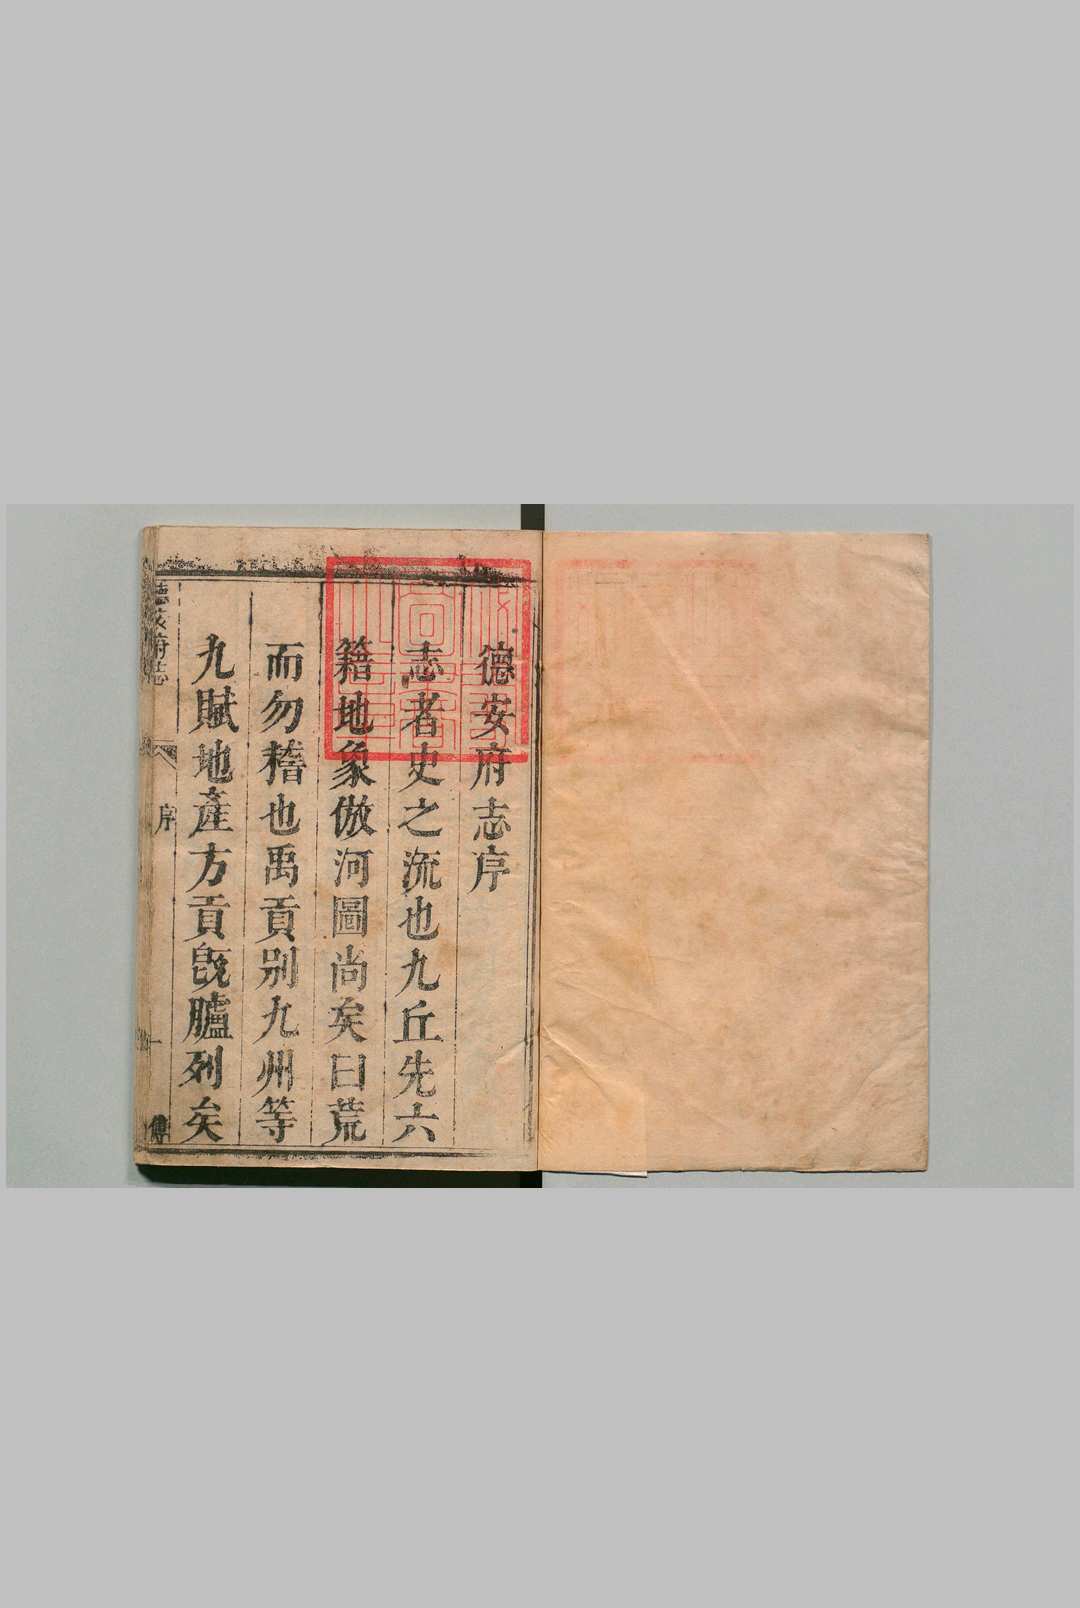 德安府志序
志者史之流也九丘先六
籍地象倣河圖尚矣曰荒
而勿稽也禹貢别九州等
九賦地產方貢旣臚列矣
德安府志
序
一
傳